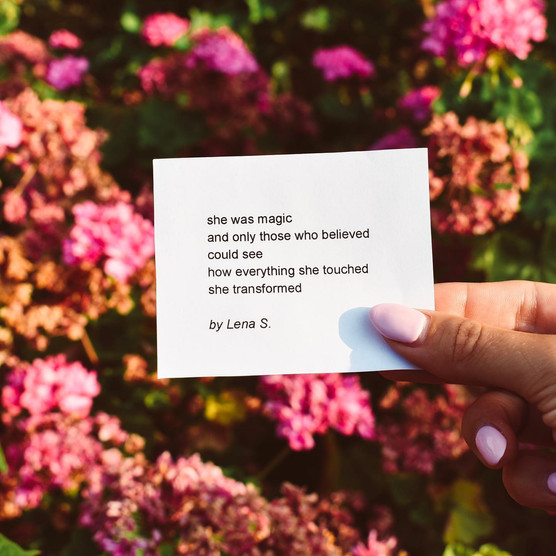 she was magic
and only those who believed
could see
how everything she touched
she transformed
by Lena S.